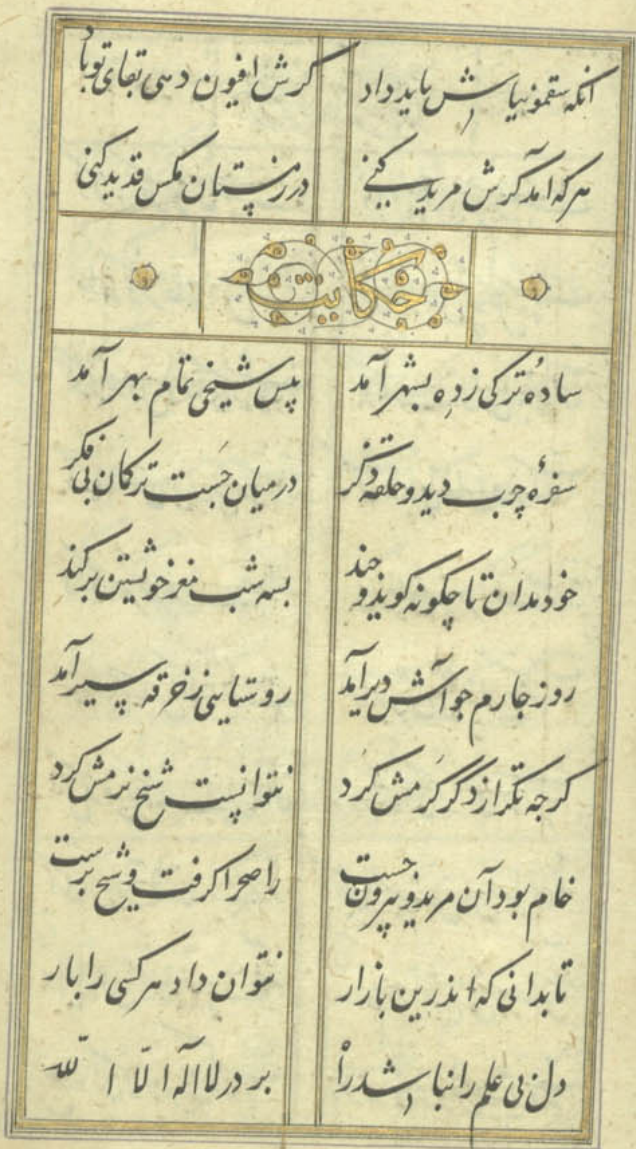 انکه سقمونیاش باید داد کرش افیون دهی بقای تو باد
هرکه آمد کرش مرید کنی در زمستان مکس قدید کنی
حکایت
ساده ترکی ز ده بشهر آمد پیش شیخی تمام بهر آمد
سفرهٔ چرب دید و حلقه ذکر در میان جست ترکمان بی فکر
خود مدان تا چکونه کوید و چند بسه شب مغز خویشتن برکند
روز چارم جو آتش دیر آمد روستایی ز خرقه سیر آمد
کرجه تکرار ذکر کرمش کرد نتوانست شیخ نرمش کرد
خام بود آن مرید و بیرون جست راه صحرا کرفت و شیخ برست
تا بدانی که اندرین بازار نتوان داد هر کسی را بار
دل بی علم را نباشد راه بر در لا اله الا الله